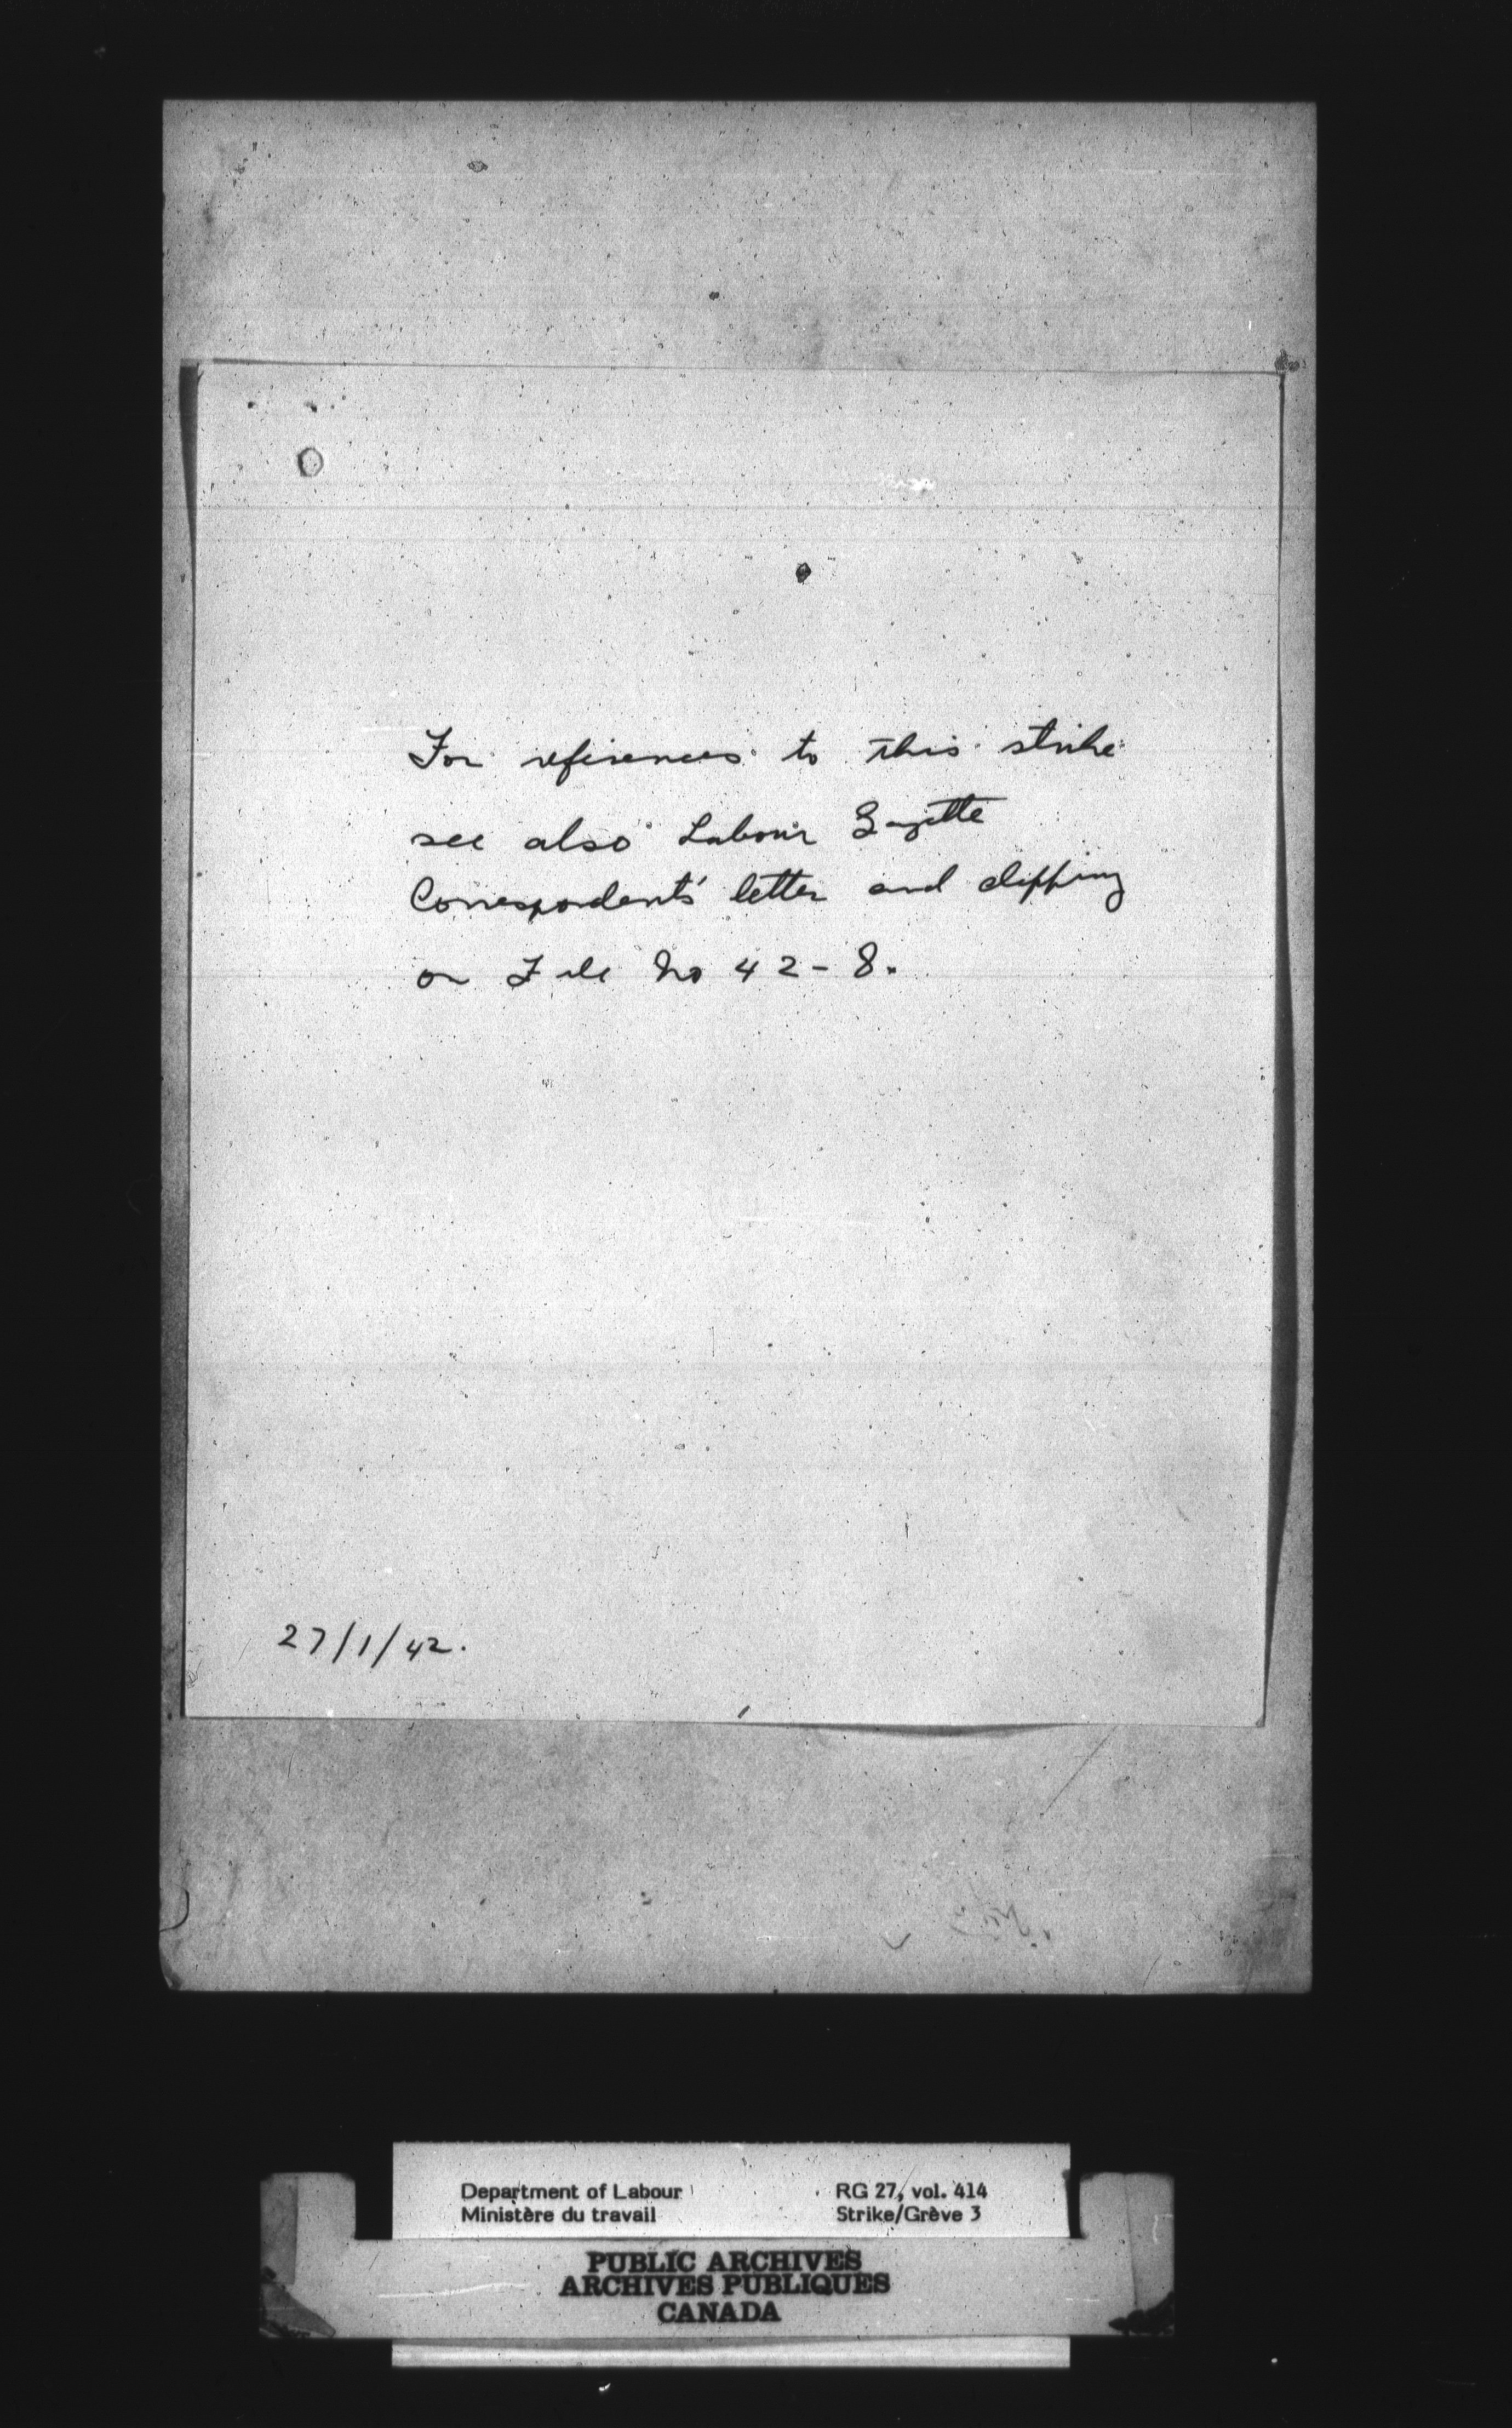 For references to this strike
see also Labour Gazette
Correspondents' letter and clipping
on File No 42-8.
27/1/42.
Department of Labour
Ministère du travail
RG 27, vol. 414
Strike/Grève 3
PUBLIC ARCHIVES
ARCHIVES PUBLIQUES
CANADA